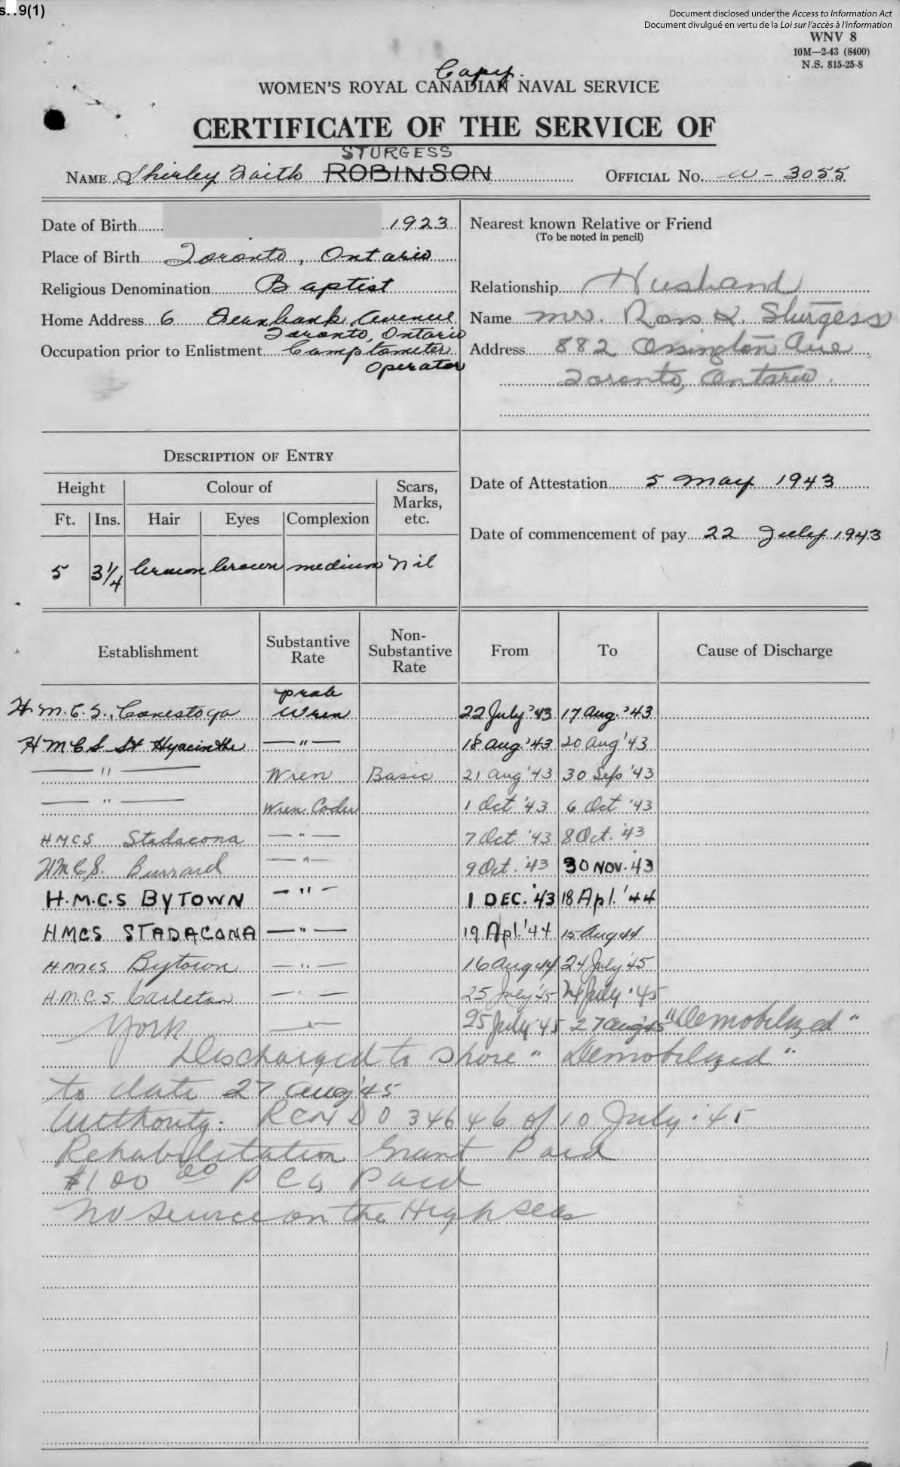 s. .9(1)
Document disclosed under the Access to Information Act
Document divulgué en vertu de la Loi sur l'accès à l'information
WNV 8
10M—2-43 (8400)
N.S. 815-25-8
Copy.
WOMEN'S ROYAL CANADIAN NAVAL SERVICE
CERTIFICATE OF THE SERVICE OF
STURGESS
NAME Shirley Faith ROBINSON OFFICIAL NO. W - 3055
Date of Birth 1923
Place of Birth Toronto, Ontario
Religious Denomination Baptist
Home Address 6 Avenue
Toronto, Ontario
Occupation prior to Enlistment Comptometer
Operator
Nearest known Relative or Friend
(To be noted in pencil)
Relationship Husband
Name Mr. Ross K. Sturgess
Address 882 Ossington Ave
Toronto, Ontario.
DESCRIPTION OF ENTRY
Height Colour of Scars, Marks, etc.
Ft. Ins. Hair Eyes Complexion
5 3 1/4 brown brown medium Nil
Date of Attestation 5 May 1943
Date of commencement of pay 22 July 1943
Establishment Substantive Rate Non-Substantive Rate From To Cause of Discharge
H.M.C.S. Conestoga prob Wren 22 July '43 17 Aug. '43
HMCS St Hyacinthe — " — 18 Aug '43 20 Aug '43
— " — Wren Basic 21 Aug '43 30 Sep '43
— " — Wren Coder 1 Oct '43 6 Oct '43
HMCS Stadacona — " — 7 Oct '43 8 Oct. '43
HMCS. Burrard — " — 9 Oct. '43 30 NOV. 43
H.M.C.S BYTOWN — " — 1 DEC. '43 18 Apl. '44
HMCS STADACONA — " — 19 Apl. '44 15 Aug 44
HMCS Bytown — " — 16 Aug 44 24 July '45
H.M.C.S Carleton — " — 25 July '45 24 July '45
York — " — 25 July '45 27 Aug '45 "Demobilized"
Discharged to shore "Demobilized"
to date 27 Aug '45
Authority: RCN DO 34646 of 10 July. 45
Rehabilitation Grant Paid
$100 00 P C A Paid
No service on the High seas